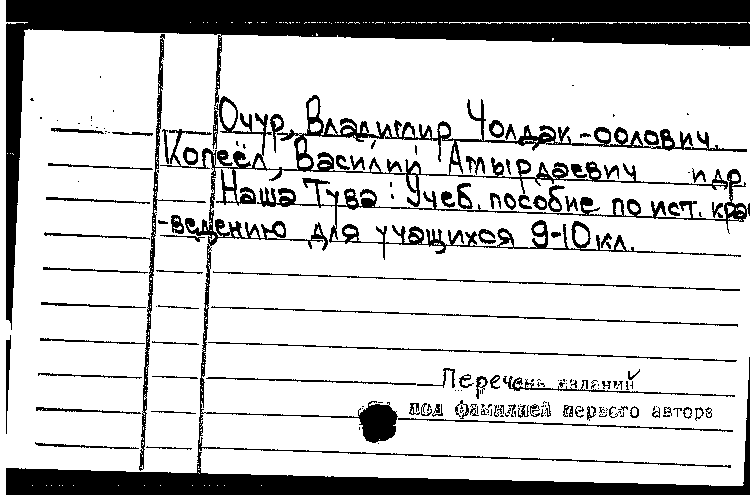 Очур, Владимир Чолдак-оолович.
Копеёл, Василий Амырдаевич и др.
Наша Тува : Учеб. пособие по ист. крае
-ведению для учащихся 9-10 кл.
Перечень изданий
под фамилией первого автора